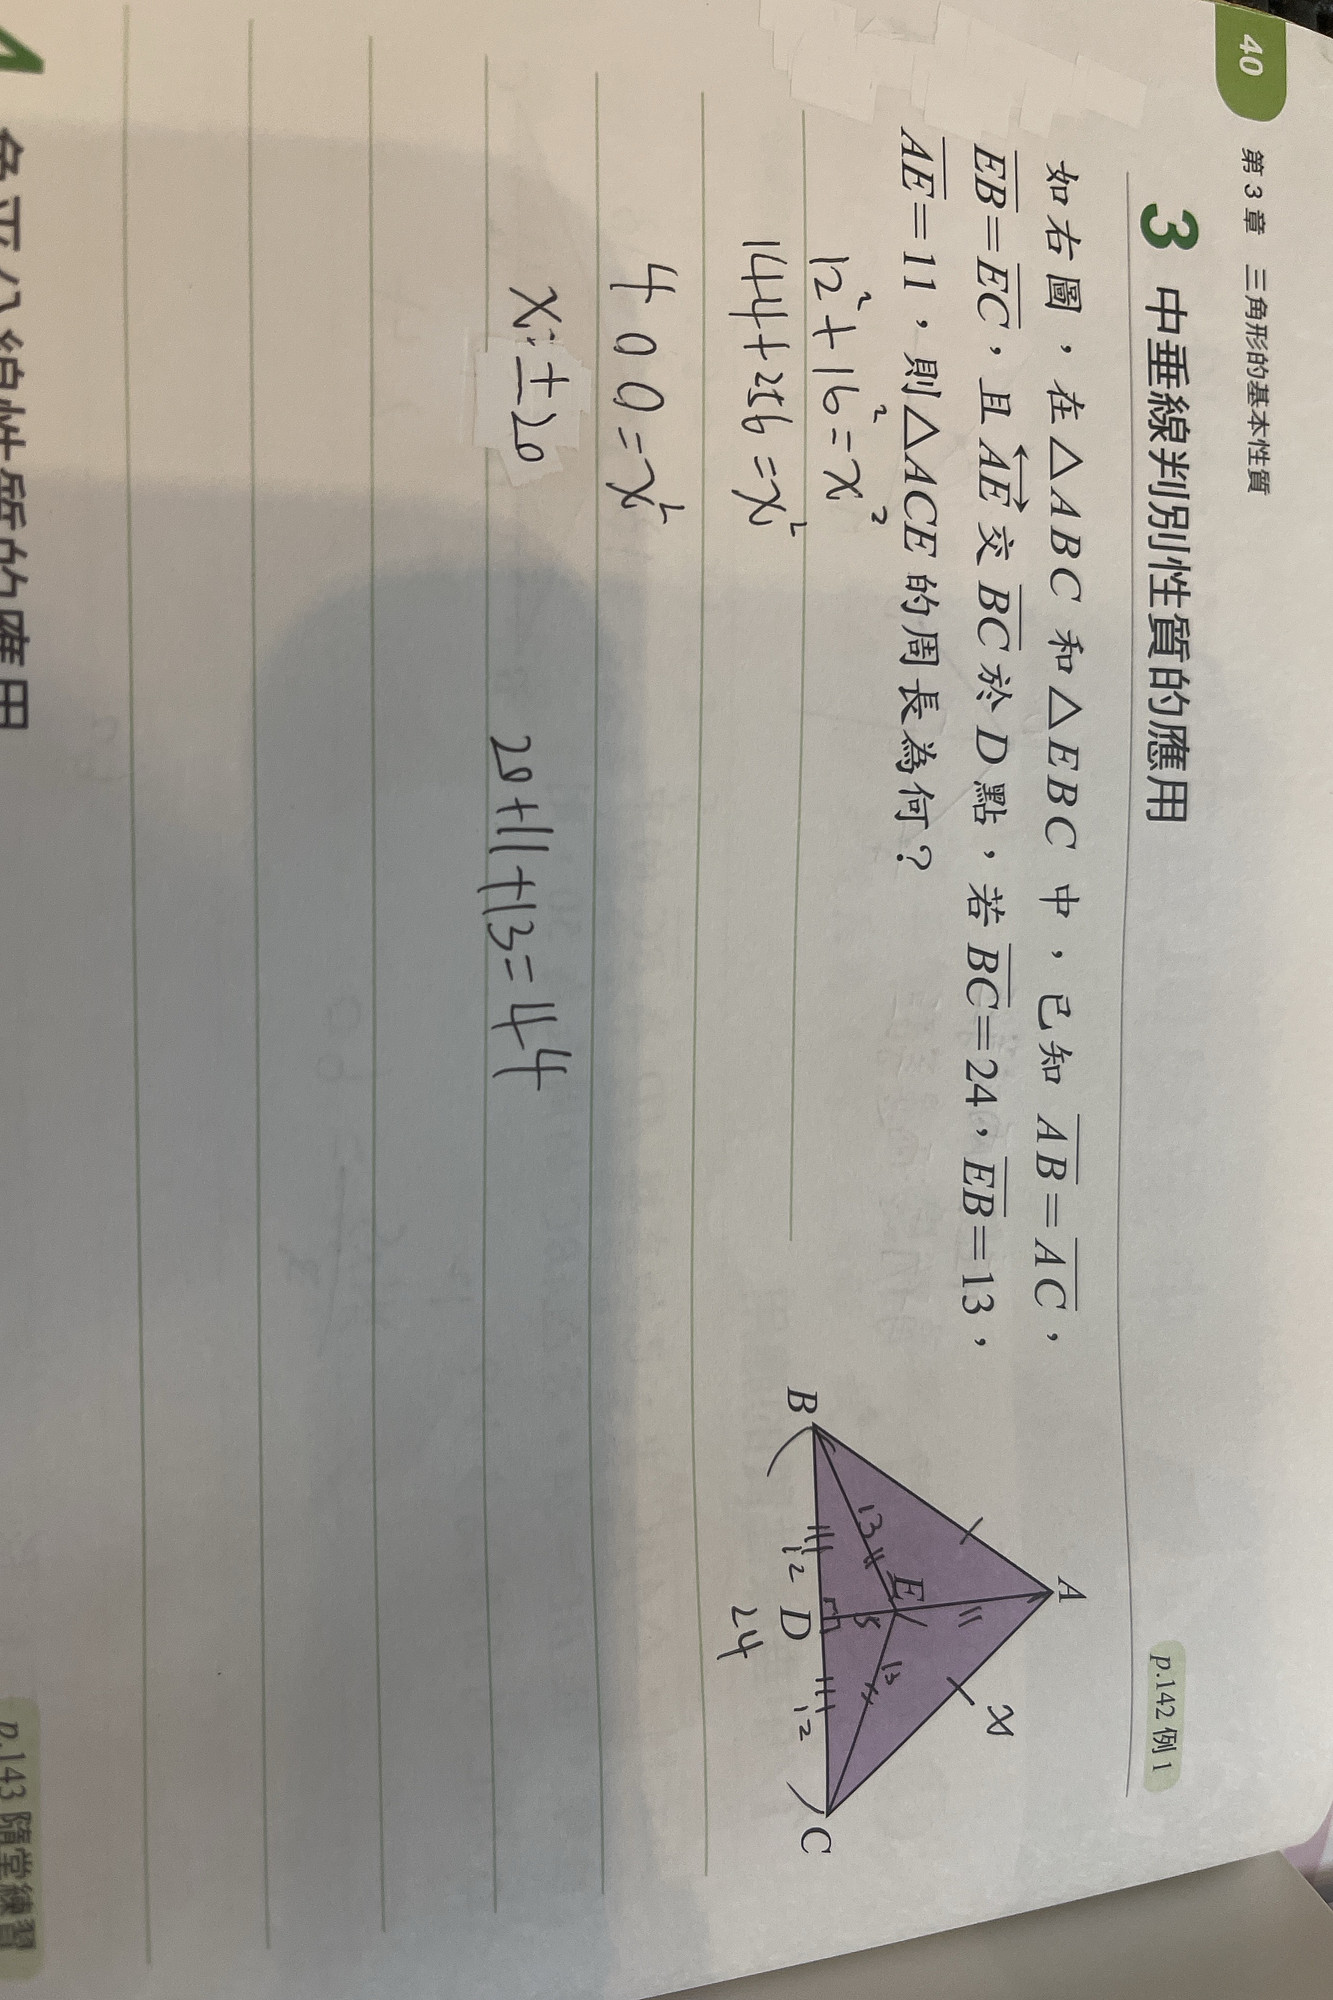 40
第3章 三角形的基本性質
3 中垂線判別性質的應用
p.142 例1
如右圖，在△ABC 和△EBC 中，已知 AB=AC，
EB=EC，且 AE 交 BC 於 D 點，若 BC=24，EB=13，
AE=11，則△ACE 的周長為何？
A
x
E
13
13
5
B
12
D
12
C
24
12²+16²=x²
144+256=x²
400=x²
x=±20
20+11+13=44
角平分線性質的應用
p.143 隨堂練習